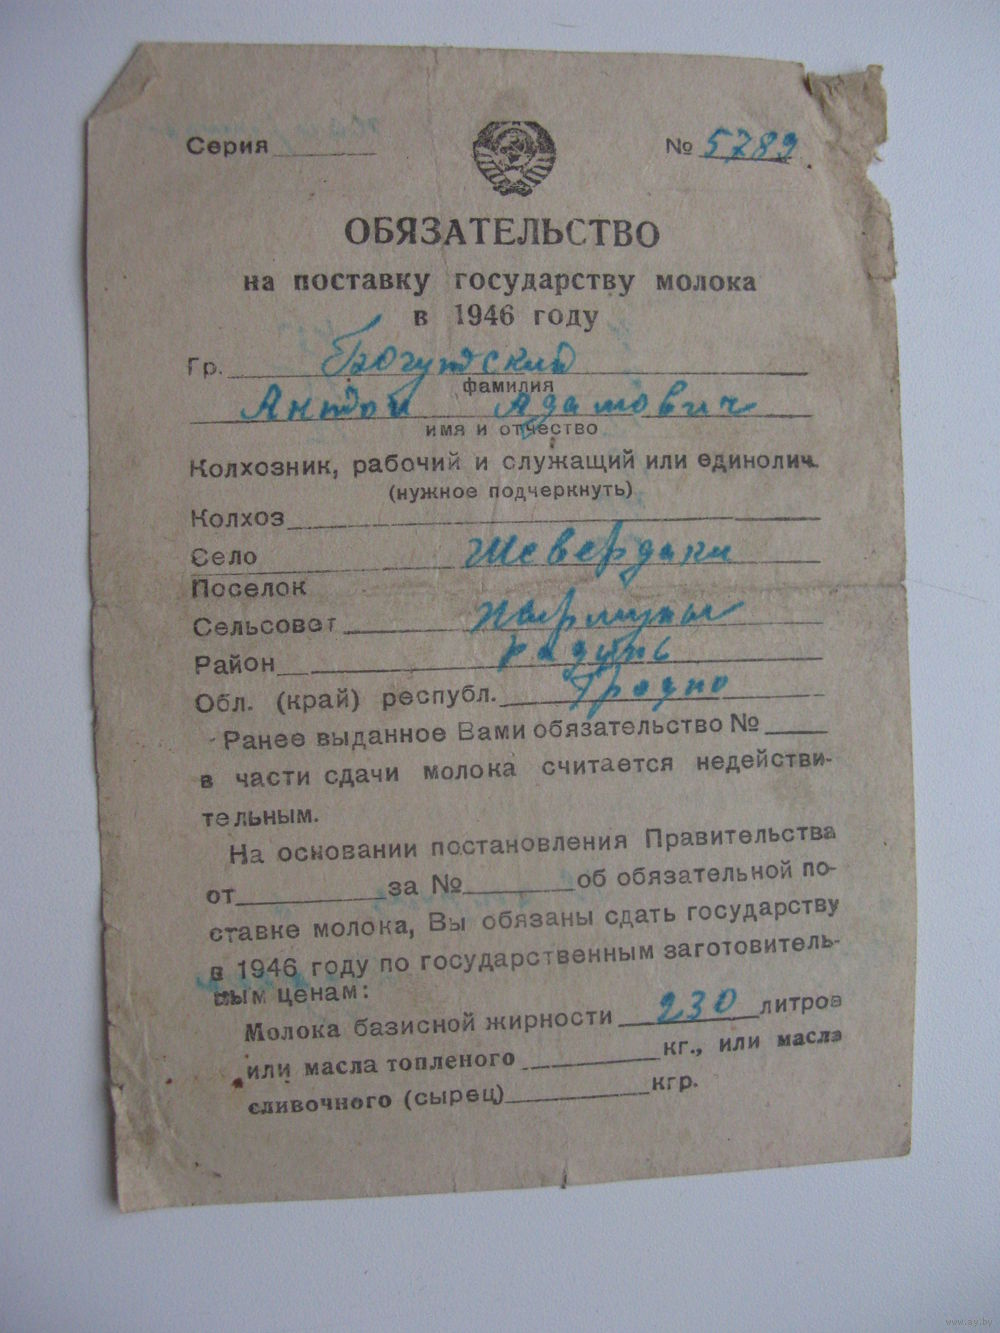 Серия № 5789
ОБЯЗАТЕЛЬСТВО
на поставку государству молока
в 1946 году
Гр. Богутский
фамилия
Антон Адамович
имя и отчество
Колхозник, рабочий и служащий или единолич.
(нужное подчеркнуть)
Колхоз
Село Шевердаки
Поселок
Сельсовет
Район Радунь
Обл. (край) республ. Гродно
Ранее выданное Вами обязательство №
в части сдачи молока считается недействи-
тельным.
На основании постановления Правительства
от за № об обязательной по-
ставке молока, Вы обязаны сдать государству
в 1946 году по государственным заготовитель-
ным ценам:
Молока базисной жирности 230 литров
или масла топленого кг., или масла
сливочного (сырец) кгр.
www.ay.by